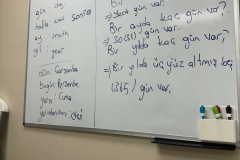 gün : day
hafta : week sonra
ay : month
yıl : year
dün : Çarşamba
bugün : Perşembe
yarın : Cuma
Bir
gün var.
Bir ayda kaç gün var?
30 (31) gün var.
Bir yılda kaç gün var?
⇒ Bir yılda üç yüz altmış beş
(365) gün var.